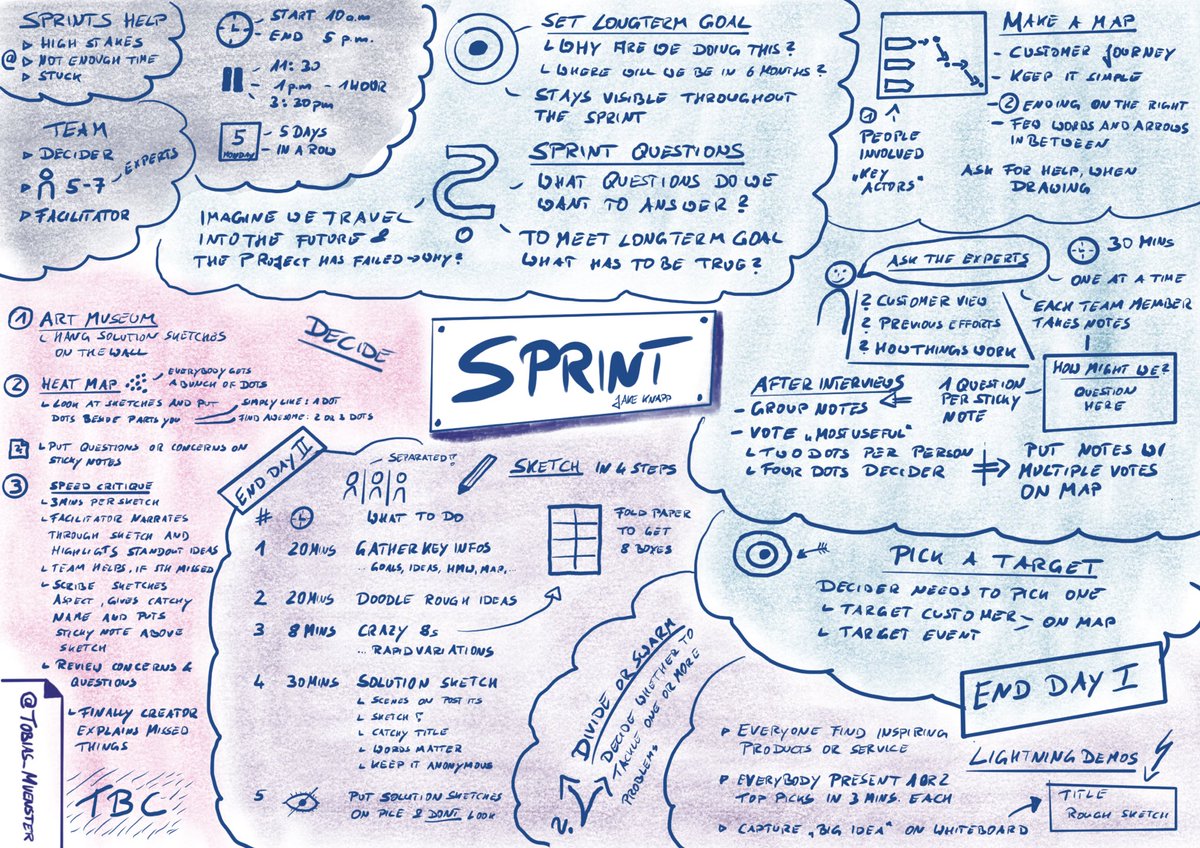 SPRINTS HELP
@ HIGH STAKES
NOT ENOUGH TIME
STUCK
TEAM
DECIDER
5-7 EXPERTS
FACILITATOR
START 10 a.m
END 5 p.m.
11:30
1 p.m - 1 HOUR
3:30 pm
5
MONDAY
5 DAYS
IN A ROW
SET LONGTERM GOAL
WHY ARE WE DOING THIS?
WHERE WILL WE BE IN 6 MONTHS?
STAYS VISIBLE THROUGHOUT
THE SPRINT
SPRINT QUESTIONS
WHAT QUESTIONS DO WE
WANT TO ANSWER?
TO MEET LONGTERM GOAL
WHAT HAS TO BE TRUE?
IMAGINE WE TRAVEL
INTO THE FUTURE &
THE PROJECT HAS FAILED → WHY?
MAKE A MAP
- CUSTOMER JOURNEY
- KEEP IT SIMPLE
- 2 ENDING ON THE RIGHT
- FEW WORDS AND ARROWS
IN BETWEEN
1
PEOPLE
INVOLVED
„KEY
ACTORS"
ASK FOR HELP, WHEN
DRAWING
ASK THE EXPERTS
30 MINS
ONE AT A TIME
EACH TEAM MEMBER
TAKES NOTES
? CUSTOMER VIEW
? PREVIOUS EFFORTS
? HOW THINGS WORK
HOW MIGHT WE?
QUESTION
HERE
1 QUESTION
PER STICKY
NOTE
AFTER INTERVIEWS
- GROUP NOTES
- VOTE „MOST USEFUL"
TWO DOTS PER PERSON
FOUR DOTS DECIDER
PUT NOTES W/
MULTIPLE VOTES
ON MAP
PICK A TARGET
DECIDER NEEDS TO PICK ONE
TARGET CUSTOMER
TARGET EVENT
ON MAP
END DAY I
SPRINT
JAKE KNAPP
DECIDE
1 ART MUSEUM
HANG SOLUTION SKETCHES
ON THE WALL
2 HEAT MAP
EVERYBODY GETS
A BUNCH OF DOTS
LOOK AT SKETCHES AND PUT
DOTS BESIDE PARTS YOU
SIMPLY LIKE: 1 DOT
FIND AWESOME: 2 OR 3 DOTS
PUT QUESTIONS OR CONCERNS ON
STICKY NOTES
3 SPEED CRITIQUE
3MINS PER SKETCH
FACILITATOR NARRATES
THROUGH SKETCH AND
HIGHLIGTS STANDOUT IDEAS
TEAM HELPS, IF STH MISSED
SCRIBE SKETCHES
ASPECT, GIVES CATCHY
NAME AND PUTS
STICKY NOTE ABOVE
SKETCH
REVIEW CONCERNS &
QUESTIONS
FINALLY CREATOR
EXPLAINS MISSED
THINGS
TBC
@TOBIAS_MUENSTER
END DAY II
SEPARATED!!
SKETCH IN 4 STEPS
# WHAT TO DO
1 20 MINS GATHER KEY INFOS
... GOALS, IDEAS, HMW, MAP, ...
2 20 MINS DOODLE ROUGH IDEAS
3 8 MINS CRAZY 8s
... RAPID VARIATIONS
4 30 MINS SOLUTION SKETCH
SCENES ON POST ITS
SKETCH
CATCHY TITLE
WORDS MATTER
KEEP IT ANONYMOUS
5 PUT SOLUTION SKETCHES
ON PILE & DONT LOOK
FOLD PAPER
TO GET
8 BOXES
DIVIDE OR SWARM
DECIDE WHETHER TO
TACKLE ONE OR MORE
PROBLEMS
?
LIGHTNING DEMOS
EVERYONE FIND INSPIRING
PRODUCTS OR SERVICE
EVERYBODY PRESENT 1 OR 2
TOP PICKS IN 3 MINS. EACH
CAPTURE „BIG IDEA" ON WHITEBOARD
TITLE
ROUGH SKETCH